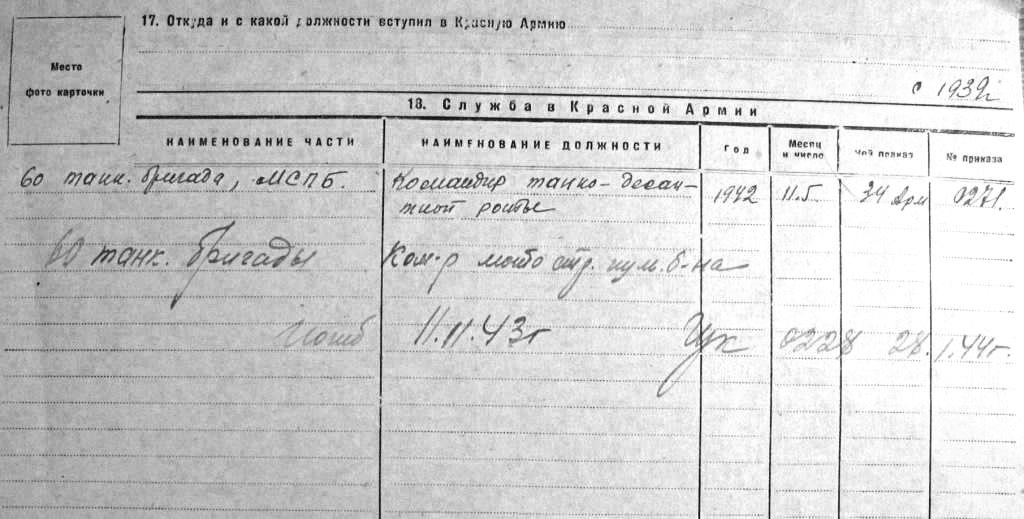 17. Откуда и с какой должности вступил в Красную Армию
Место
фото карточки
с 1939г
18. Служба в Красной Армии
НАИМЕНОВАНИЕ ЧАСТИ НАИМЕНОВАНИЕ ДОЛЖНОСТИ Год Месяц и число Чей приказ № приказа
60 танк. бригада, МСПБ. Командир танко-десан- 1942 11.5 34 Арм 0271.
тной роты
60 танк. бригады Ком-р мото стр. пул. б-на
погиб 11.11.43г ГУК 0228 28.1.44г.